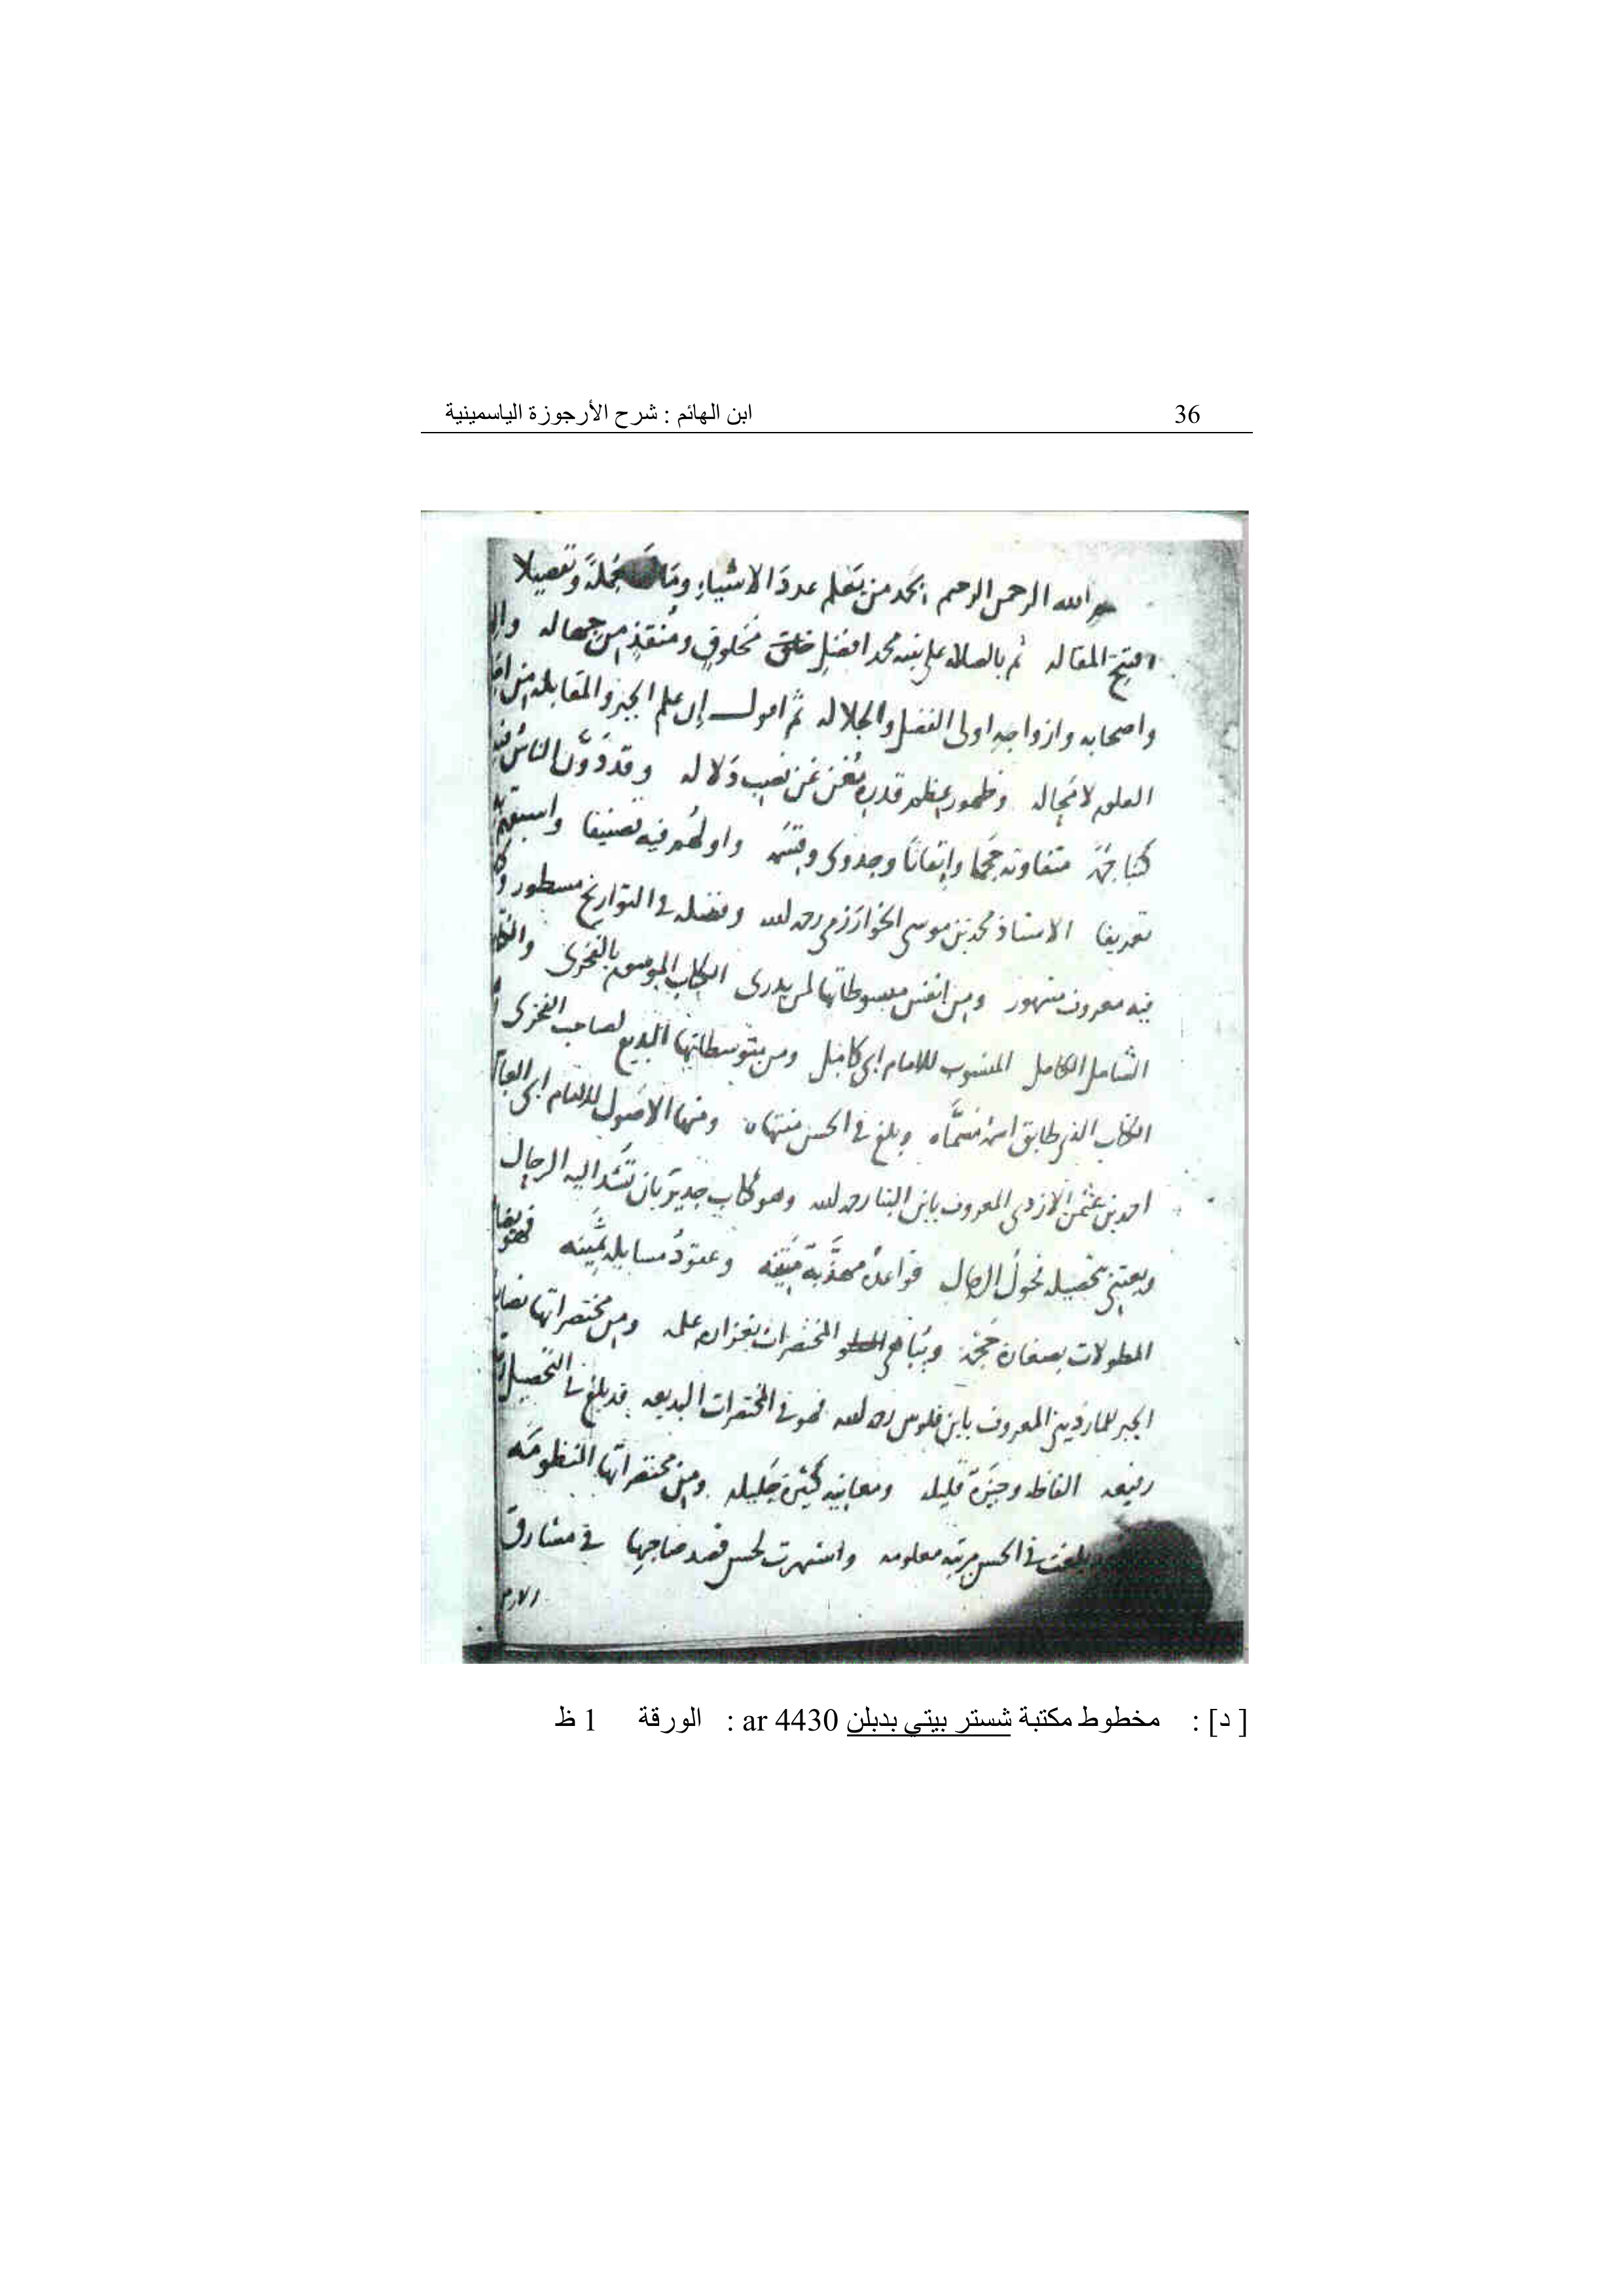 36 ابن الهائم : شرح الأرجوزة الياسمينية
الله الرحمن الرحيم بحمد من يعلم عدد الاشياء جملة وتفصيلا
افتتح المقاله ثم بالصلاه على نبيه محمد افضل مخلوق ومنقذ من جهاله
واصحابه وازواجه اولى الفضل والجلاله ثم اقول إن علم الجبر والمقابله من
العلوم لا محاله وظهور عظم قدره يغنى عن نصب دلاله وقد دون الناس فيه
كتبا جمة متفاوته حجما واتقانا وجدوى واولهم فيه تصنيفا
تعريفا الاستاذ محمد بن موسى الخوارزمى رحمه الله وفضله فى التواريخ مسطور
فيه معروف مشهور ومن انفس مبسوطاتها لمن يدرى الكتاب الموسوم بالفخرى
الشامل الكامل المنسوب للامام ابى كامل ومن متوسطاتها البديع لصاحب الفخرى
الكتاب الذى طابق اسمه مسماه وبلغ فى الحسن منتهاه ومنها الاصول للامام ابى
احمد بن عثمن الازدى المعروف بابن البنا رحمه الله وهو كتاب جدير بان تشد اليه الرحال
ويعتنى بتحصيله فحول الرجال قواعده مهذبة متقنه وعقود مسايله ثمينه
المطولات بصغارة حجمه ويباهى المختصرات بغزارة علمه ومن مختصراتها نصاب
الجبر للماردينى المعروف بابن فلوس رحمه الله فهو فى المختصرات البديعه قد بلغ فى التحصيل
رفيعه الفاظه وجيزة قليله ومعانيه كثيرة جليله ومن مختصراتها المنظومه
بلغت فى الحسن مرتبه معلومه واشتهرت لحسن قصد صاحبها فى مشارق
[ د] : مخطوط مكتبة شستر بيتي بدبلن ar 4430 : الورقة 1 ظ